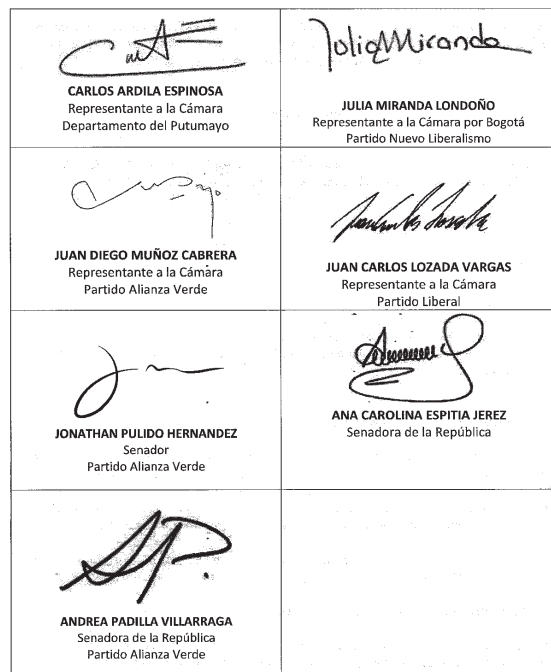 CARLOS ARDILA ESPINOSA
Representante a la Cámara
Departamento del Putumayo
Julia Miranda
JULIA MIRANDA LONDOÑO
Representante a la Cámara por Bogotá
Partido Nuevo Liberalismo
JUAN DIEGO MUÑOZ CABRERA
Representante a la Cámara
Partido Alianza Verde
JUAN CARLOS LOZADA VARGAS
Representante a la Cámara
Partido Liberal
JONATHAN PULIDO HERNANDEZ
Senador
Partido Alianza Verde
ANA CAROLINA ESPITIA JEREZ
Senadora de la República
ANDREA PADILLA VILLARRAGA
Senadora de la República
Partido Alianza Verde